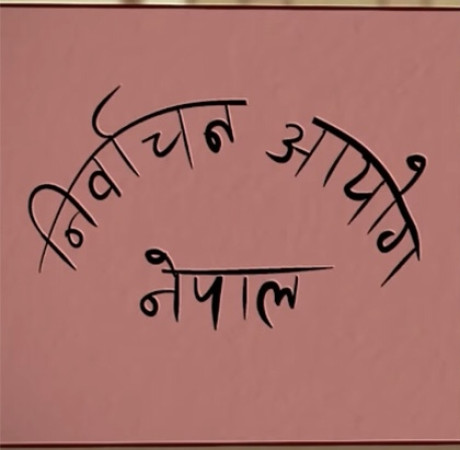 निर्वाचन आयोग
नेपाल